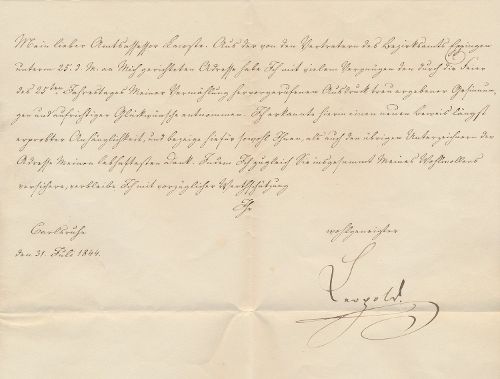 Mein lieber Amtsassessor Lacoste. Aus der von den Vertretern des Bezirksamts Eppingen
unterm 25. d. M. an Mich gerichteten Adresse habe Ich mit vielem Vergnügen den durch die Feier
des 25ten Jahrestages Meiner Vermählung hervorgerufenen Ausdruck treu ergebener Gesinnun,
gen und aufrichtiger Glückwünsche entnommen. Ich erkannte hierin einen neuen Beweis längst
erprobter Anhänglichkeit, und bezeige hiefür sowohl Ihnen, als auch den übrigen Unterzeichnern der
Adresse Meinen lebhaftesten Dank. Indem Ich zugleich Sie insgesammt Meines Wohlwollens
versichere, verbleibe Ich mit vorzüglicher Werthschätzung
Ihr
Carlsruhe wohlgeneigter
den 31. Juli 1844.
Leopold.